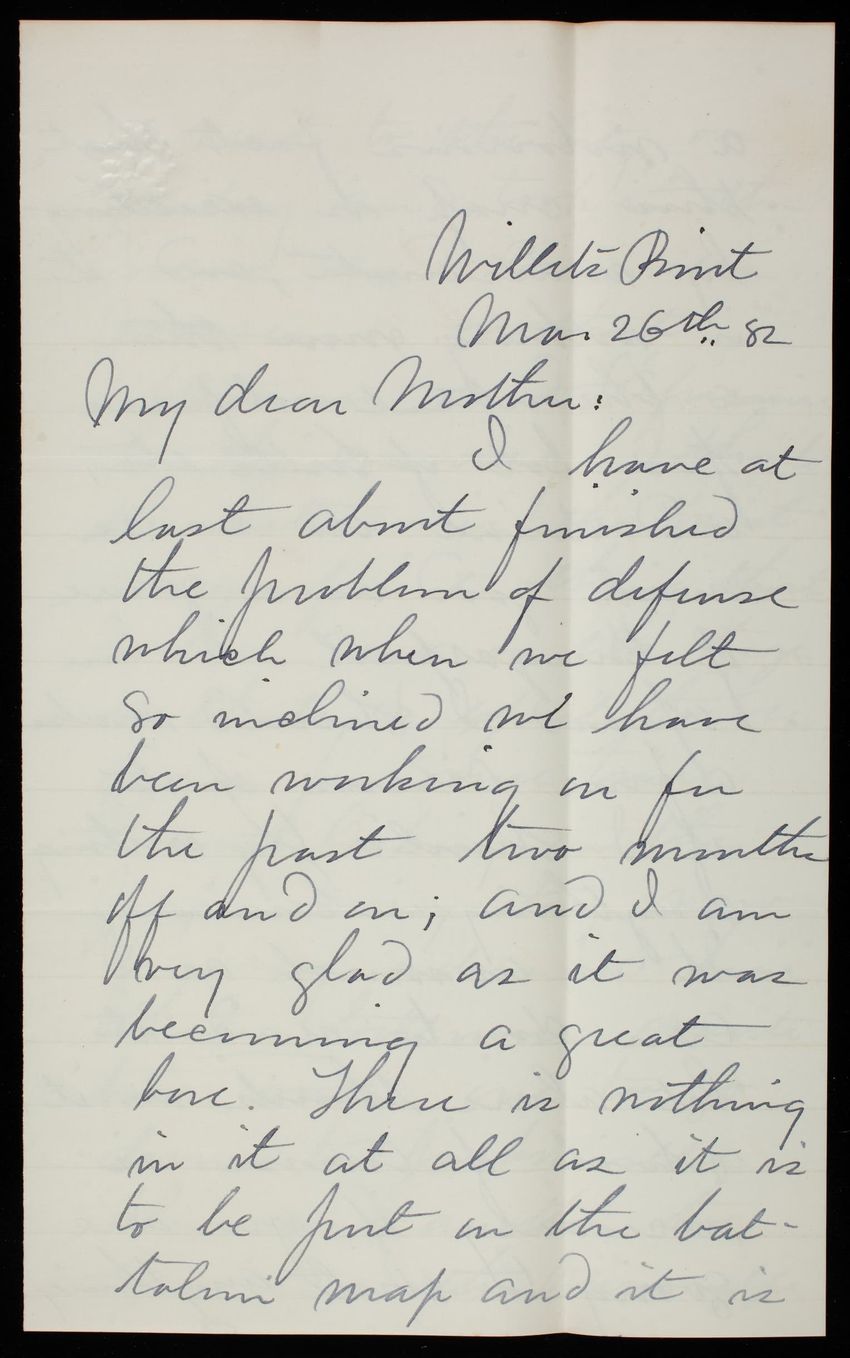 Willets Point
Mar 26th, 82
My dear Mother:
I have at
last about finished
the problem of defense
which when we felt
so inclined we have
been working on for
the past two months
off and on; and I am
very glad as it was
becoming a great
bore. There is nothing
in it at all as it is
to be put on the bat-
talion map and it is